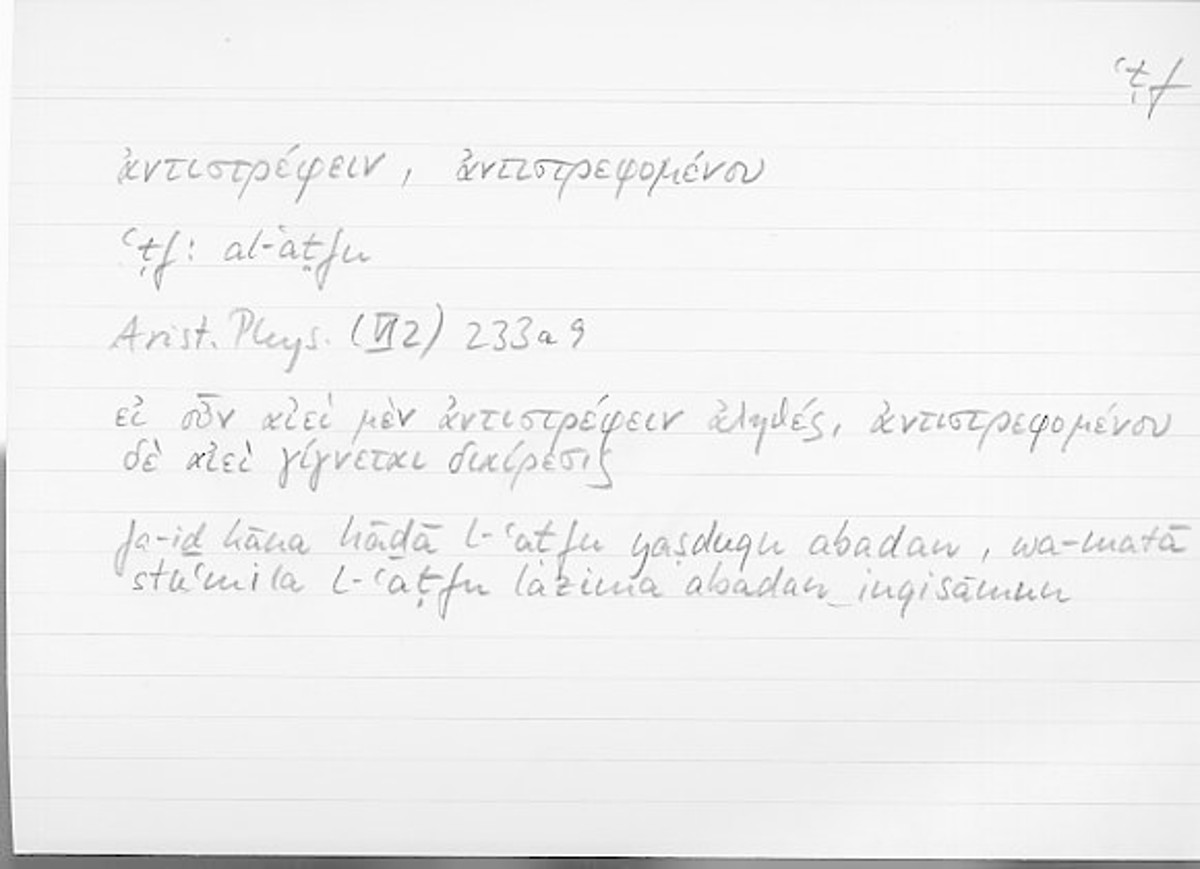 ʿṭf
ἀντιστρέφειν, ἀντιστρεφομένου
ʿṭf: al-ʿaṭfu
Arist. Phys. (VI 2) 233a9
εἰ οὖν αἰεὶ μὲν ἀντιστρέφειν ἀληθές, ἀντιστρεφομένου
δὲ αἰεὶ γίγνεται διαίρεσις
fa-iḏ kāna hāḏā l-ʿaṭfu yaṣduqu abadan, wa-matā
stuʿmila l-ʿāṭfu lazima abadan inqisāmun